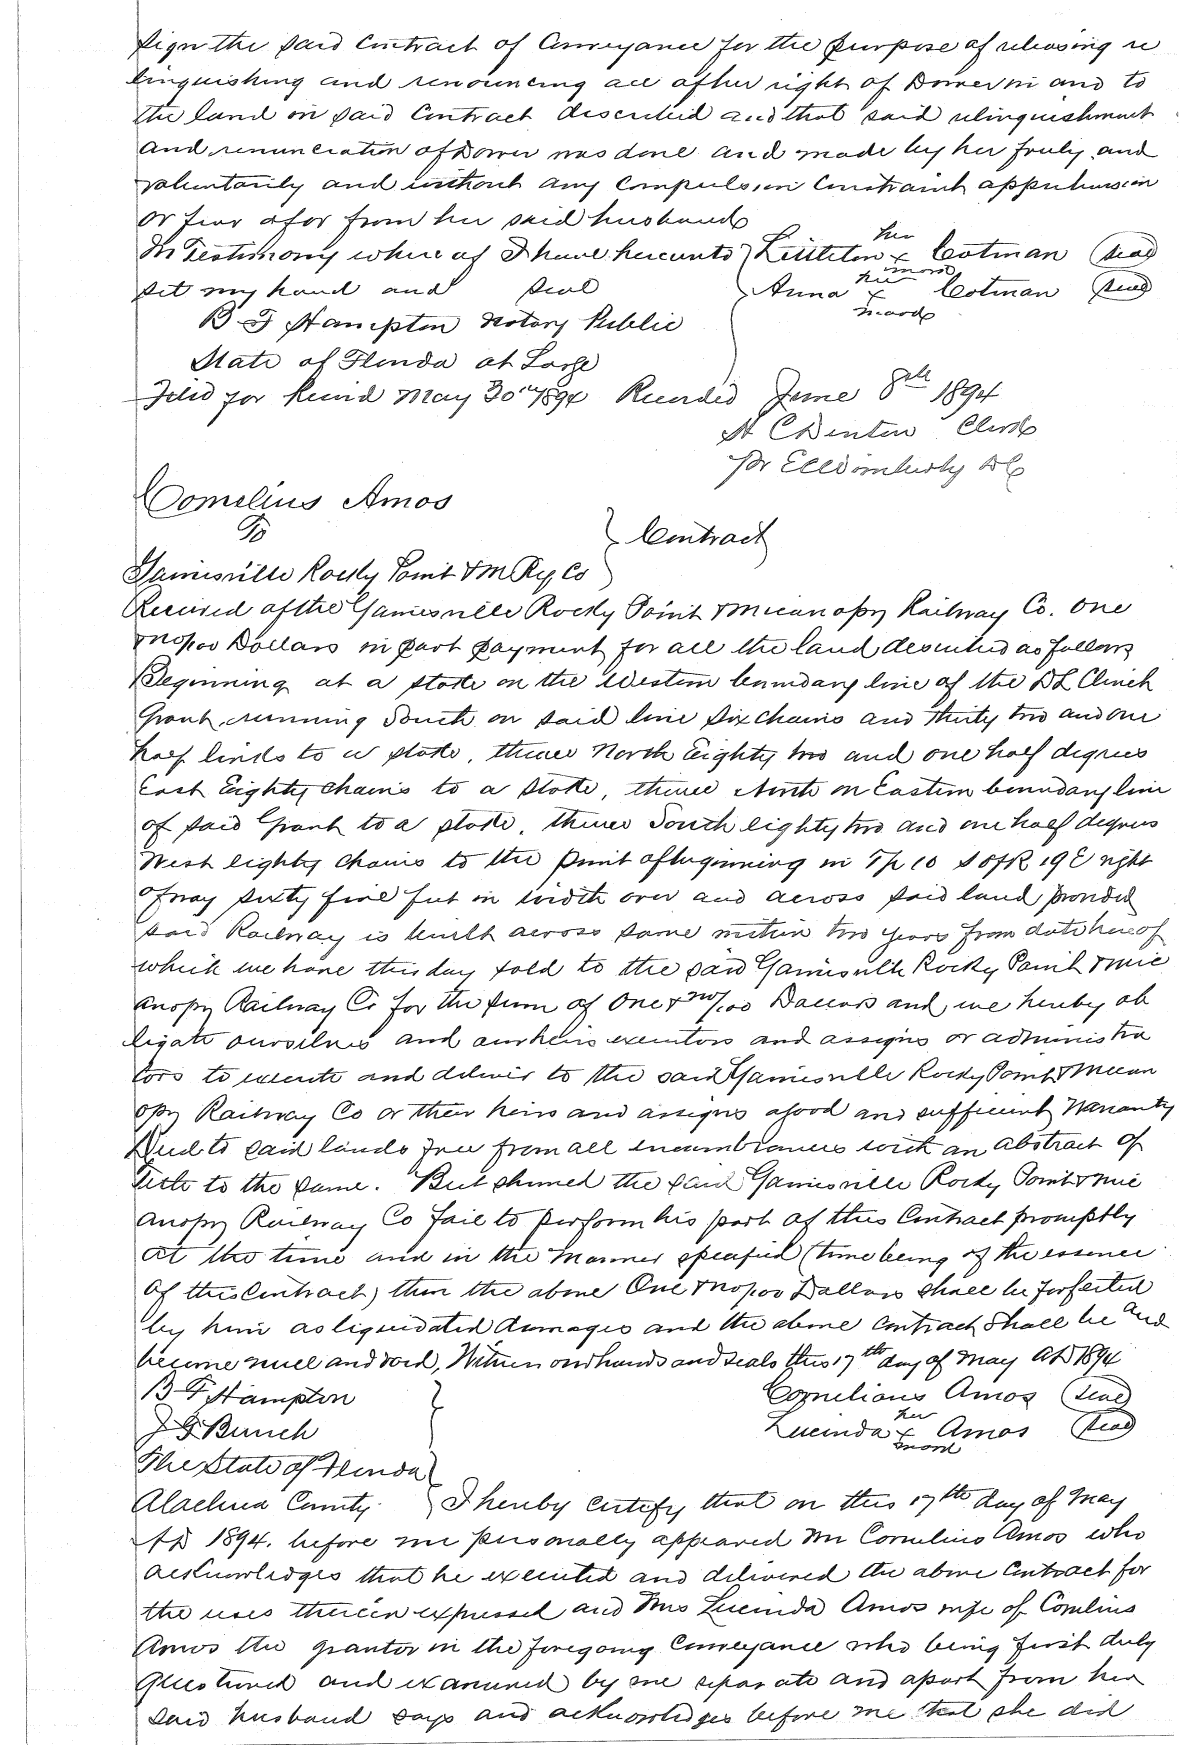 sign the said Contract of Conveyance for the purpose of releasing re
linquishing and renouncing all of her right of Dower in and to
the land in said Contract described and that said relinquishment
and renunciation of Dower was done and made by her freely and
voluntarily and without any compulsion Constraint apprehension
or fear of or from her said husband
In Testimony where of I have hereunto } Littleton her x mark Cotman (seal)
set my hand and seal Anna her x mark Cotman (seal)
B F Hampton Notary Public
State of Florida at Large
Filed for Record May 30th 1894 Recorded June 8th 1894
H C Denton Clerk
pr DC
Cornelius Amos
To } Contract
Gainesville Rocky Point & M Ry Co
Received of the Gainesville Rocky Point & Micanopy Railway Co. One
& no/100 Dollars in part payment for all the land described as follows
Beginning at a stake on the Western boundary line of the D L Clinch
Grant running South on said line six chains and thirty two and one
half links to a stake, thence North Eighty two and one half degrees
East Eighty chains to a stake, thence North on Eastern boundary line
of said Grant to a stake, thence South eighty two and one half degrees
West eighty chains to the point of beginning in Tp 10 S of R 19 E right
of way sixty five feet in width over and across said land, provided
said Railway is built across same within two years from date hereof
which we have this day sold to the said Gainesville Rocky Point & Mic
anopy Railway Co for the sum of One & no/100 Dollars and we hereby ob
ligate ourselves and our heirs executors and assigns or administra
tors to execute and deliver to the said Gainesville Rocky Point & Mican
opy Railway Co or their heirs and assigns a good and sufficient Warranty
Deed to said lands free from all encumbrances with an abstract of
title to the same. But should the said Gainesville Rocky Point & Mic
anopy Railway Co fail to perform his part of this Contract promptly
at the time and in the Manner specified (time being of the essence
of this Contract) then the above One & no/100 Dollars shall be forfeited
by him as liquidated damages and the above contract shall be and
become null and void, Witness our hands and seals this 17th day of May AD 1894
B F Hampton } Cornelious Amos (seal)
J G Bunch Lucinda her x mark Amos (seal)
The State of Florida }
Alachua County } I hereby certify that on this 17th day of May
AD 1894. before me personally appeared Mr Cornelius Amos who
acknowledges that he executed and delivered the above Contract for
the uses therein expressed and Mrs Lucinda Amos wife of Cornlius
Amos the grantor in the foregoing Conveyance who being first duly
questioned and examined by me separate and apart from her
said husband says and acknowledges before me that she did